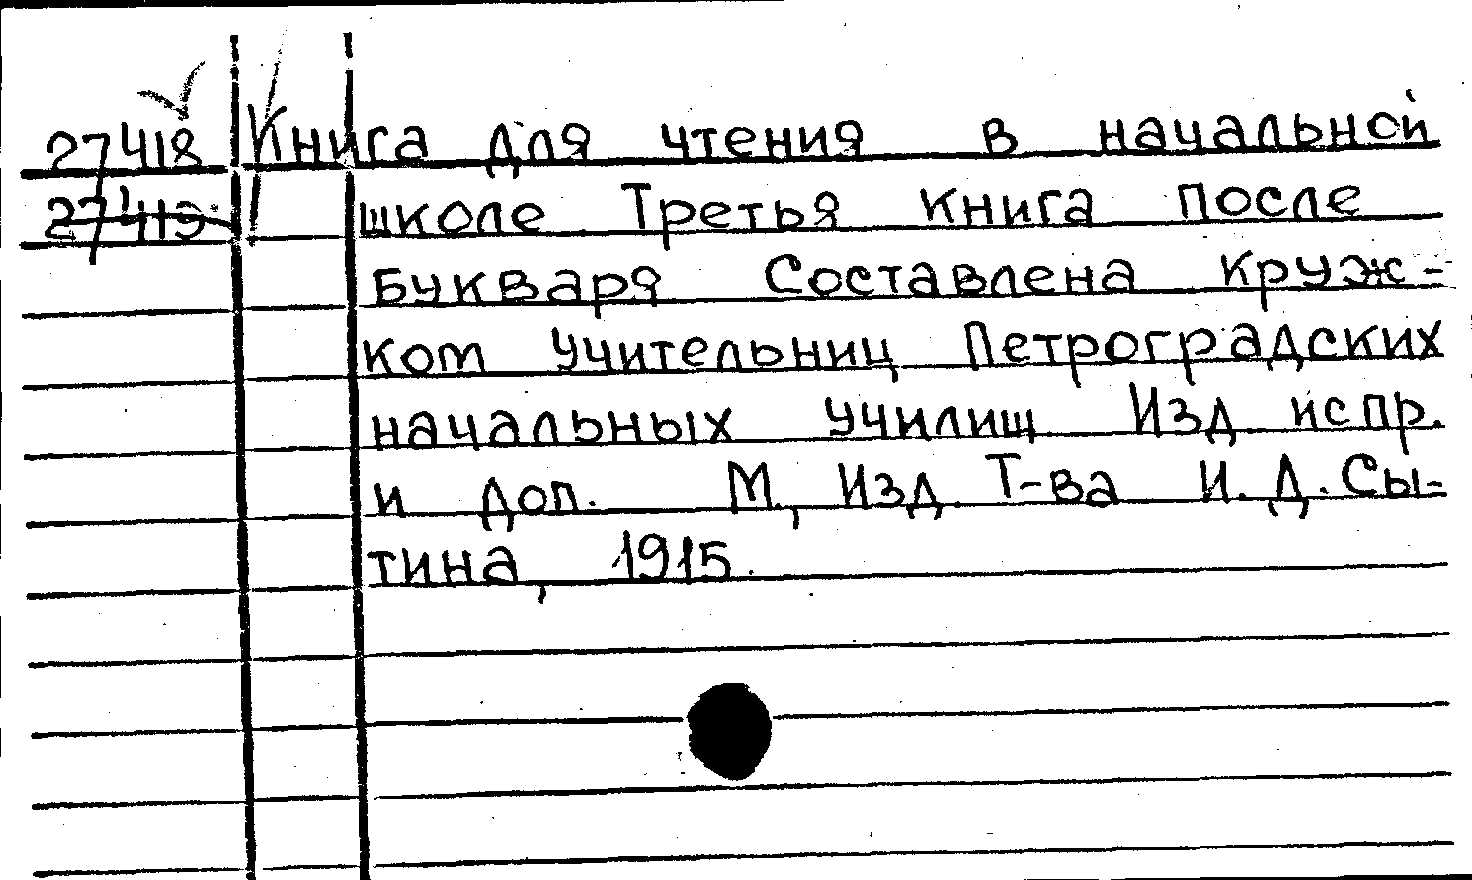 27418 Книга для чтения в начальной
27419 школе Третья книга после
Букваря Составлена круж-
ком учительниц Петроградских
начальных училищ Изд испр.
и доп. М., Изд. Т-ва И. Д. Сы-
тина, 1915.